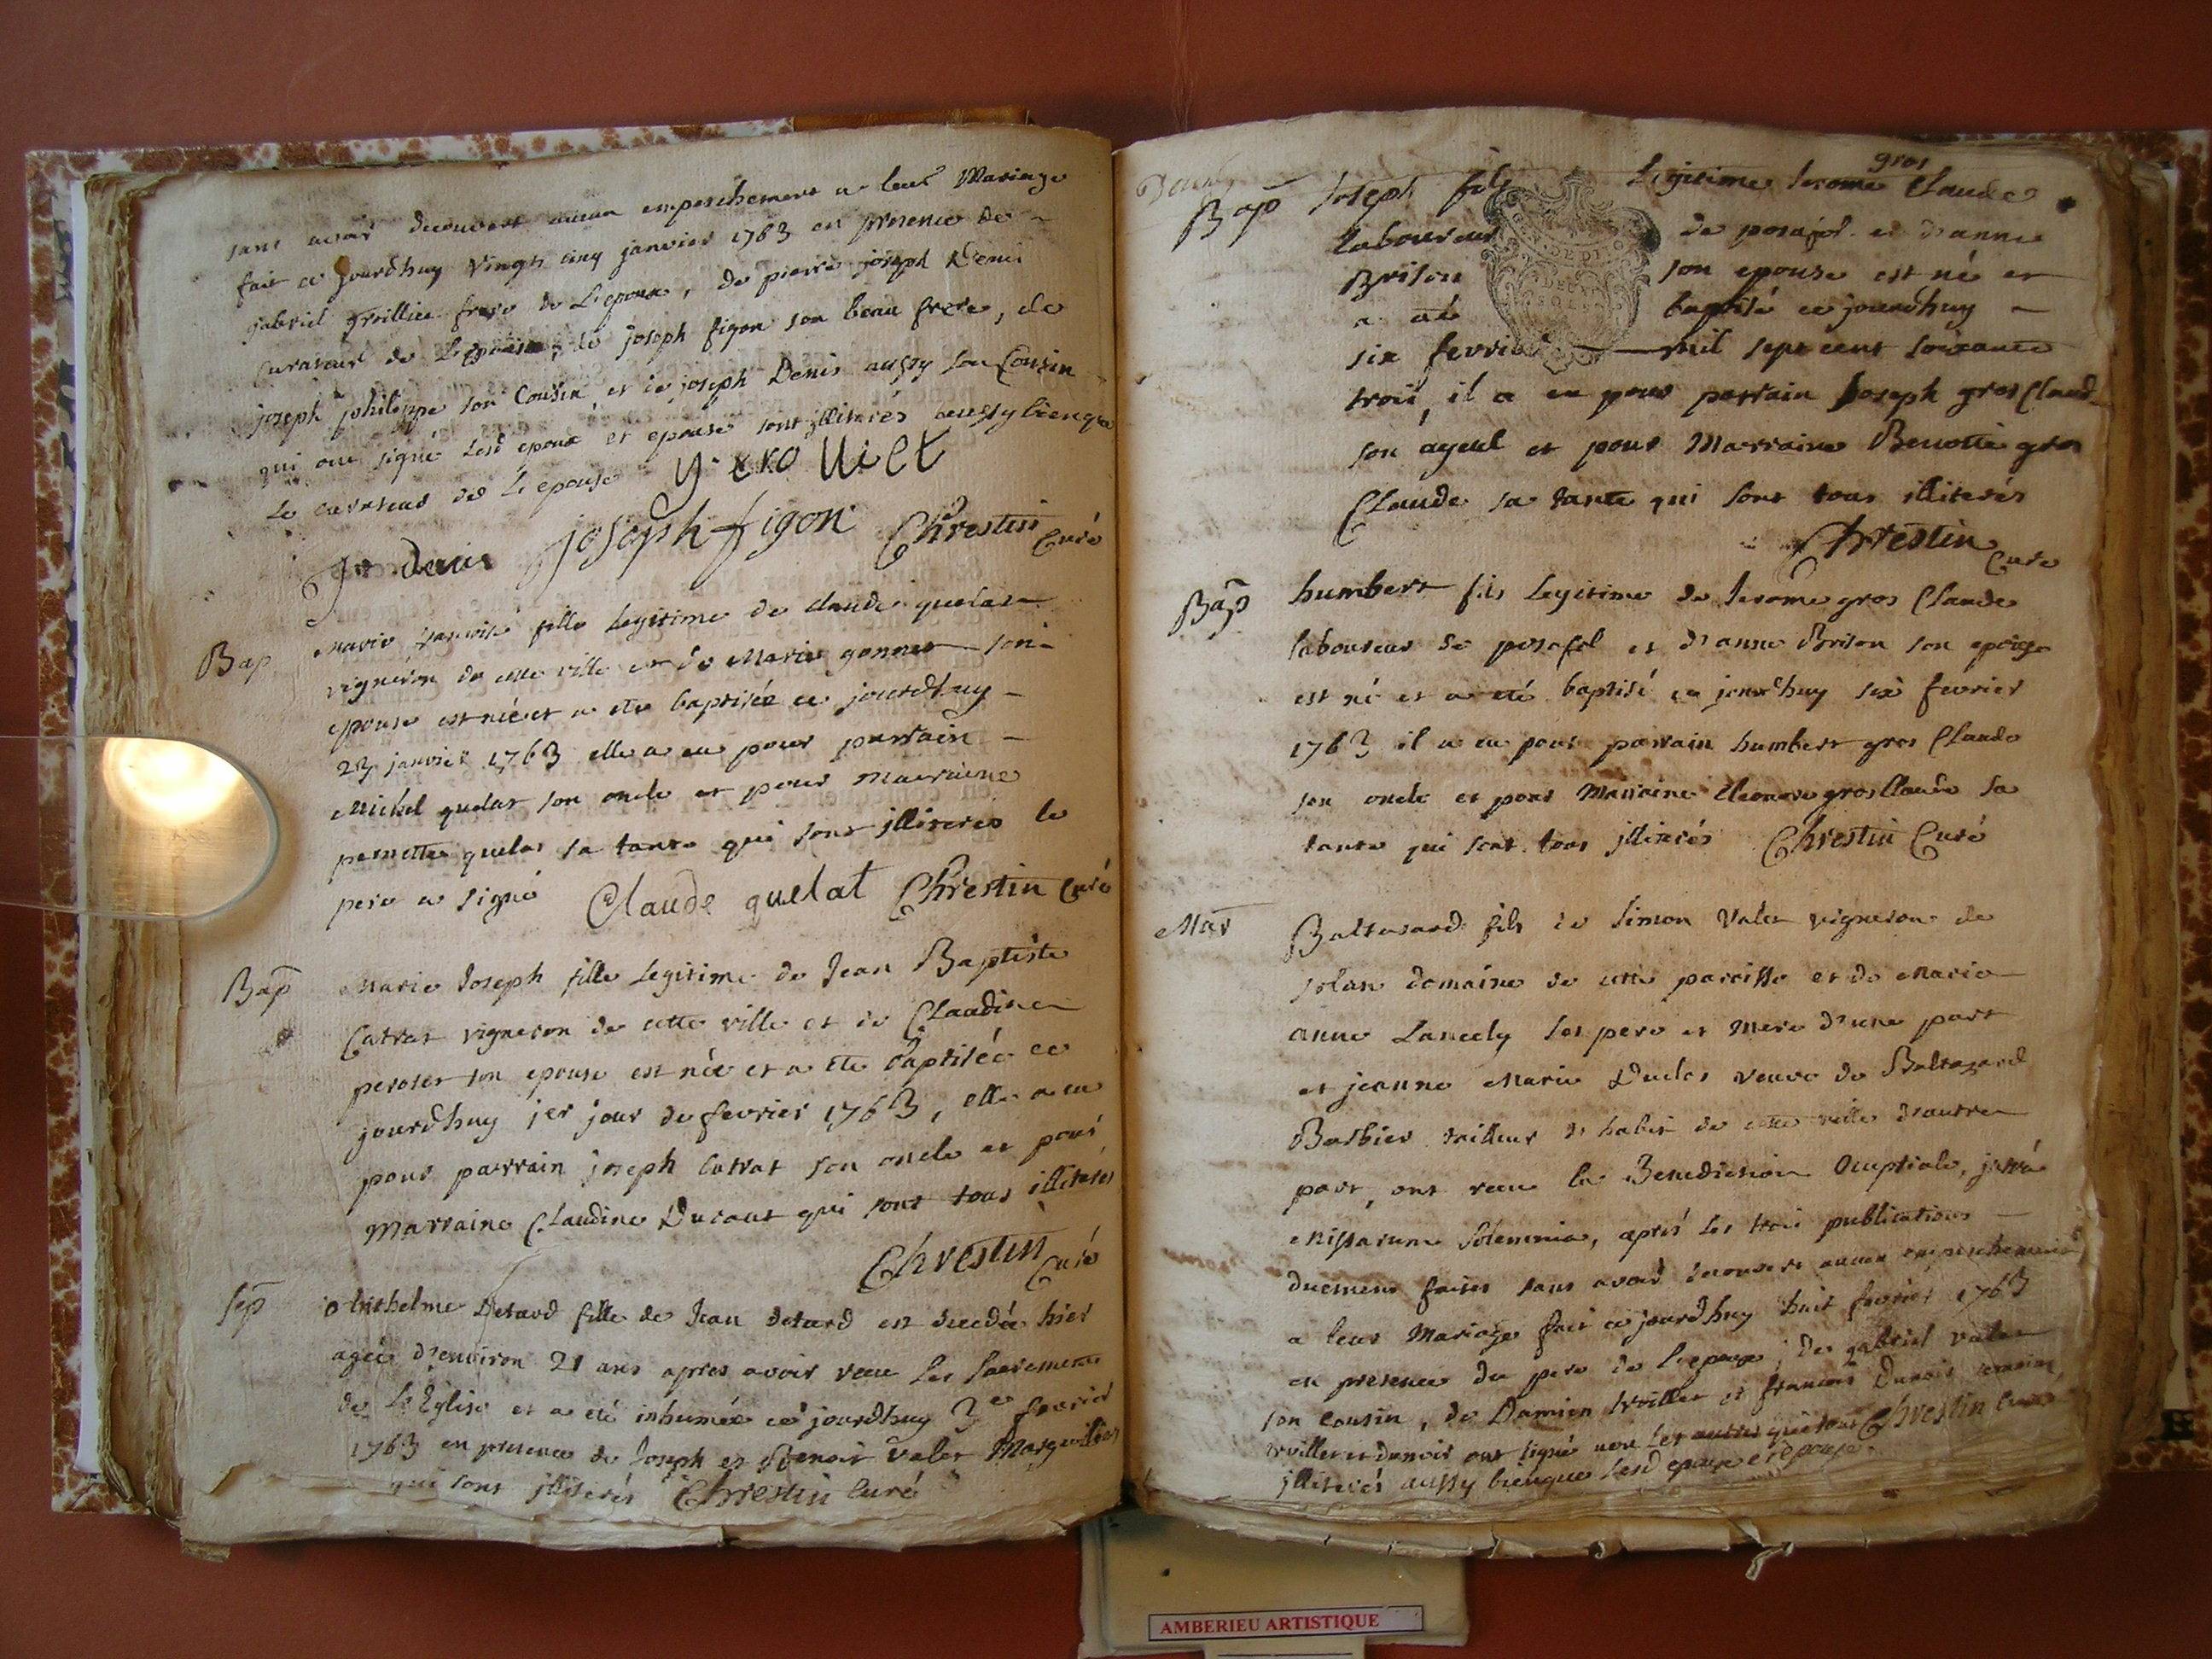 sans avoir decouvert aucun empeschement a leur Mariage
fait ce jourdhuy vingt cinq janvier 1763 en presence de
gabriel frere de L'epoux, de pierre joseph Denis
Curateur de L'epouse, de joseph figon son beau frere, de
joseph philippe son Cousin et de joseph Denis aussy son Cousin
qui ont signé Lesd epoux et epouse sont illiterés aussy bienque
Le curateur de L'epouse
Denis joseph figon Chrestin Curé
Bap Marie françoise fille Legitime de claude quelat
vigneron de cette ville et de Marie gonnet son
epouse est née et a eté baptisée ce jourdhuy
23 janvier 1763 elle a eu pour parrain
Michel quelat son oncle et pour marraine
pernette quelat sa tante qui sont illiterés le
pere a signé Claude quelat Chrestin Curé
Bap Marie Joseph fille Legitime de Jean Baptiste
Catrat vigneron de cette ville et de Claudine
son epouse est née et a eté baptisée ce
jourdhuy 1er jour de fevrier 1763, elle a eu
pour parrain joseph Catrat son oncle et pour
Marraine Claudine qui sont tous illiterés
Chrestin
Curé
Sep Anthelme Detard fille de Jean detard est decedée hier
agée d'environ 21 ans apres avoir receu Les Sacremens
de L'Eglise et a eté inhumée ce jourdhuy 3e fevrier
1763 en presence de Joseph et Benoit valet Marguilliers
qui sont illiterés Chrestin Curé
Bap Joseph fils Legitime Jerome gros Claude
Laboureur de posafol et d'anne
Brison son epouse est né et
a eté baptisé ce jourdhuy
six fevrier mil sept cent soixante
trois, il a eu pour parrain Joseph gros Claude
son ayeul et pour Marraine Benoitte gros
Claude sa tante qui sont tous illiterés
Chrestin
Curé
Bap humbert fils Legitime de Jerome gros Claude
laboureur de posafol et d'anne Brison son epouse
est né et a eté baptisé ce jourdhuy six fevrier
1763 il a eu pour parrain humbert gros Claude
son oncle et pour Marraine Eleonore gros Claude sa
tante qui sont tous illiterés Chrestin Curé
Mar Baltasard fils de Simon Valet vigneron de
domaine de cette paroisse et de Marie
anne Lancely ses pere et Mere d'une part
et jeanne Marie Duclos veuve de Baltazard
Barbier tailleur d'habit de cette ville d'autre
part, ont receu la Benediction Nuptiale, intra
Missarum Solemnia, après les trois publications
duement faites sans avoir decouvert aucun empeschement
a leur Mariage fait ce jourdhuy huit fevrier 1763
en presence du pere de L'epoux, de gabriel valet
son cousin, de Damien trvillet et francois Dunoir temoins
trvillet et dunoir ont signé non les autres qui sont Chrestin Curé
illiterés aussy bienque Lesd epoux et epouse.
AMBERIEU ARTISTIQUE